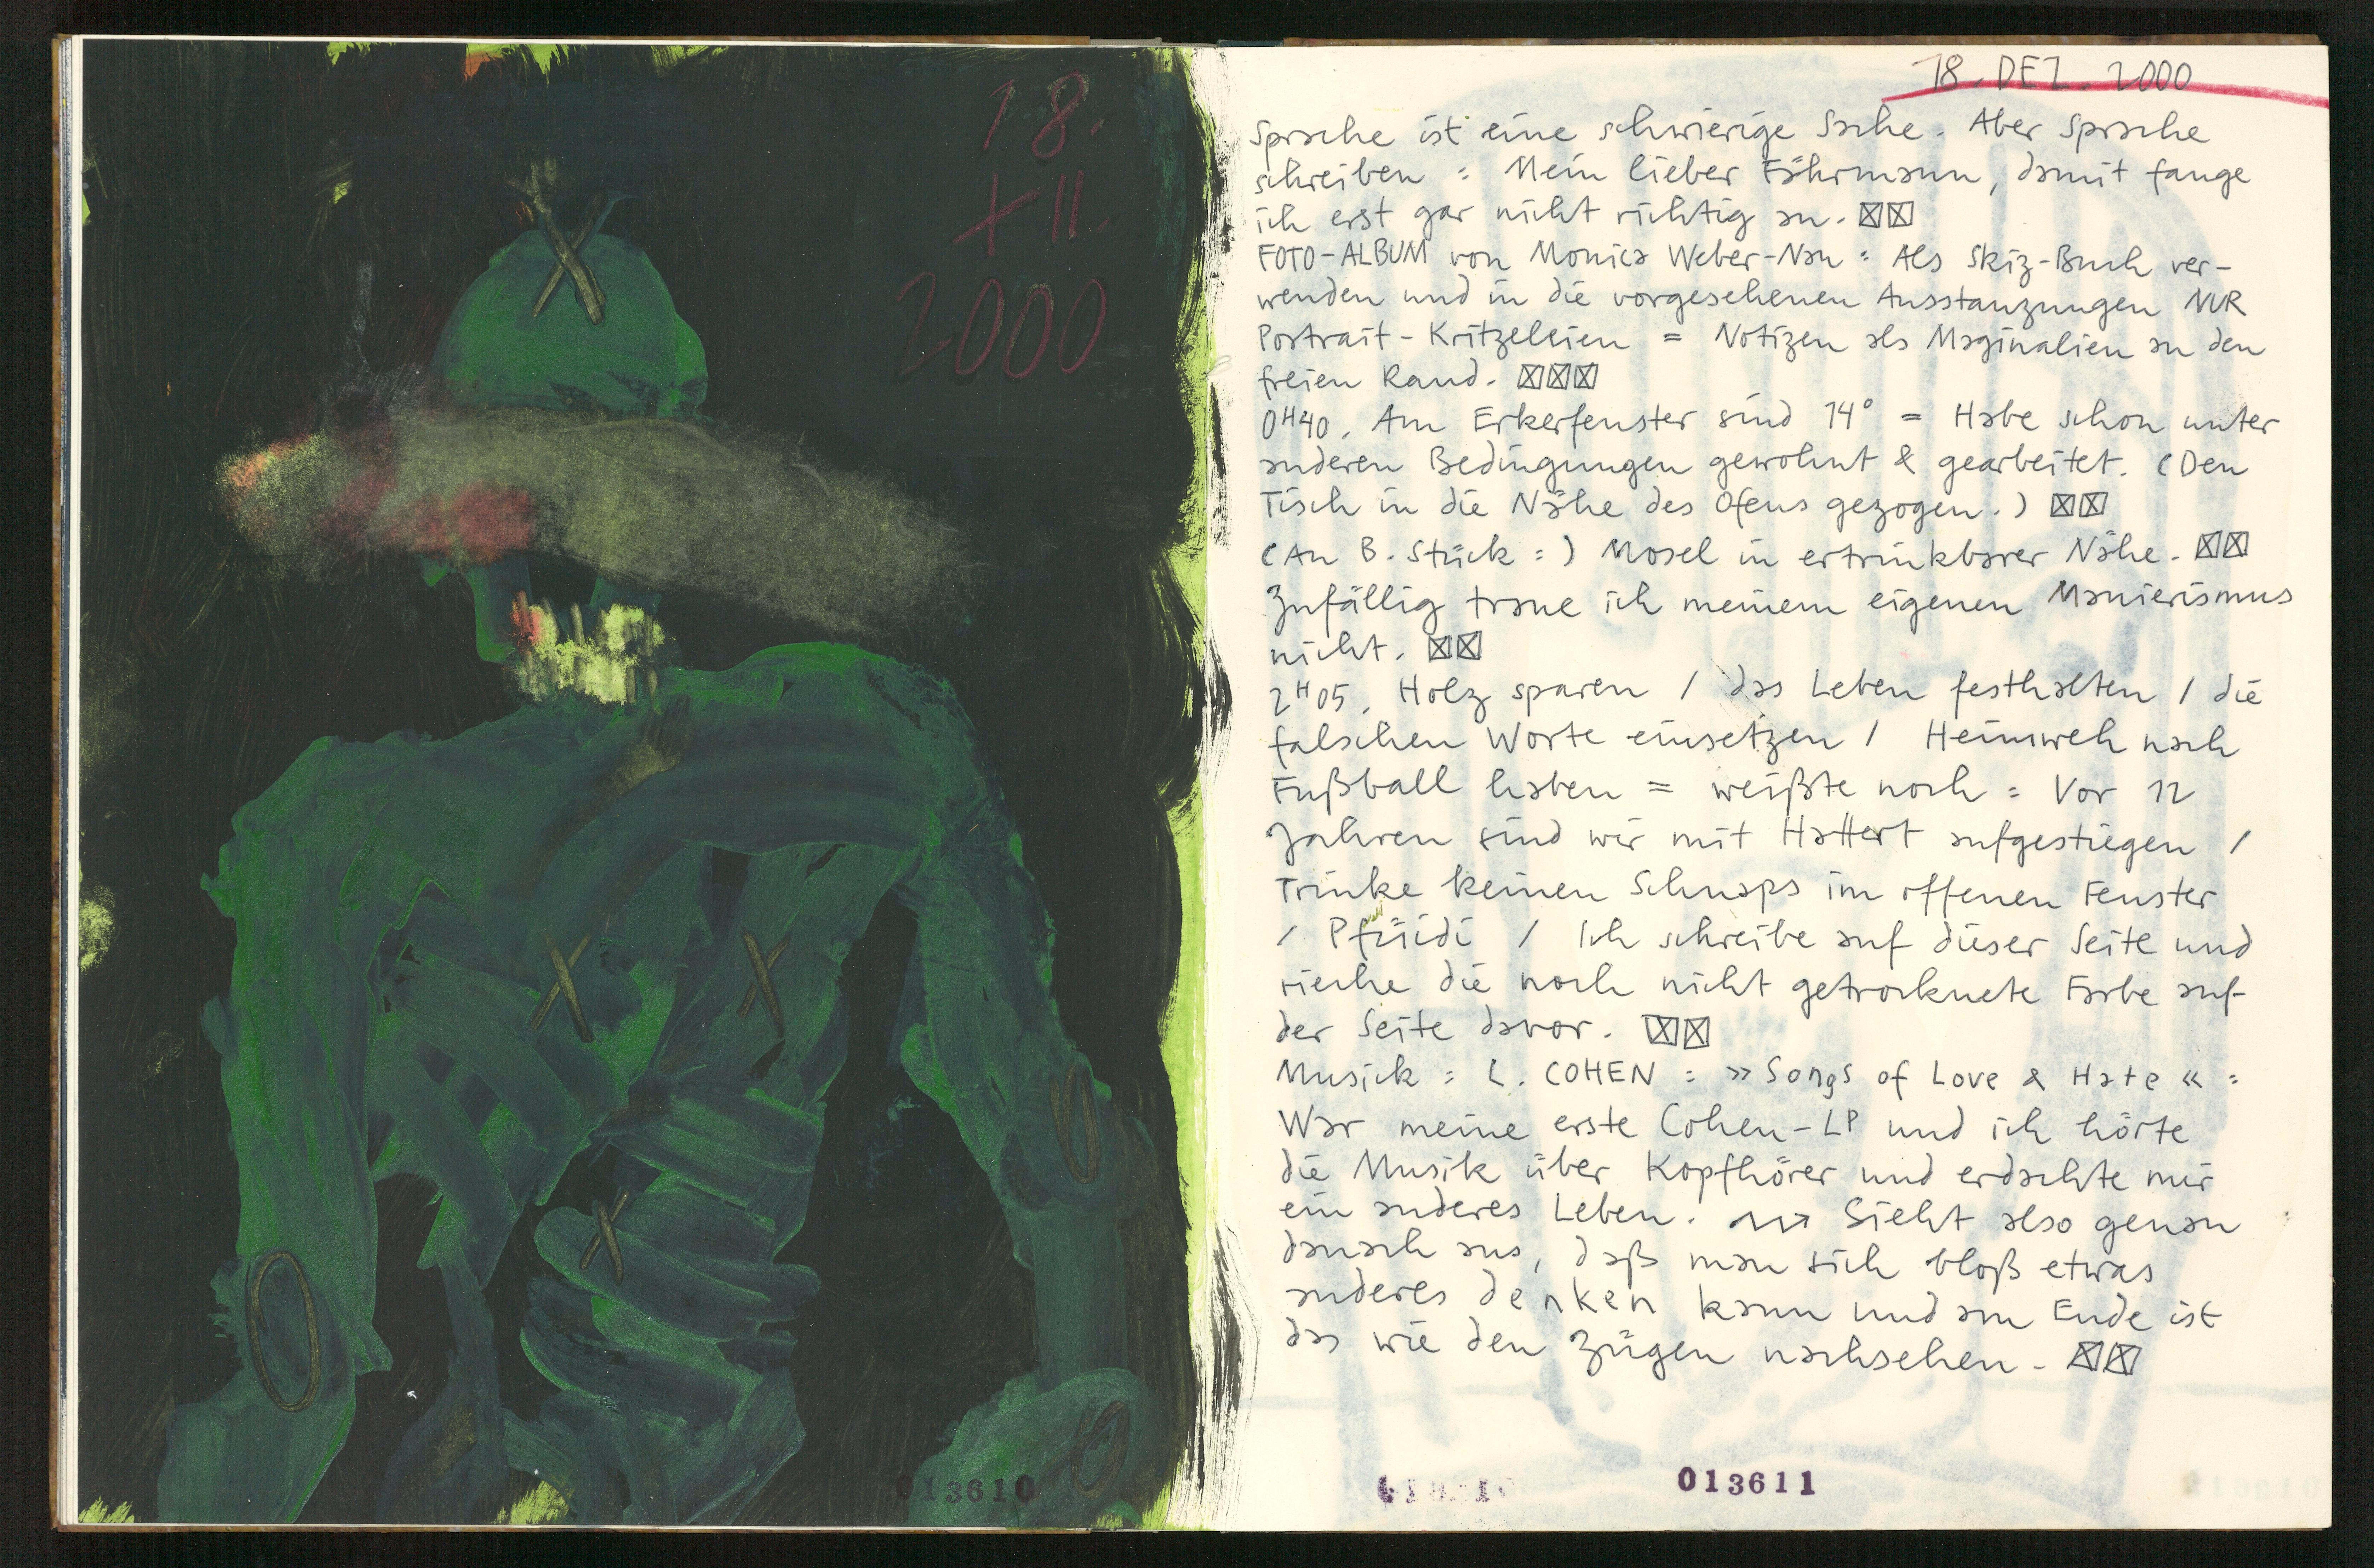 18.
XII.
2000
013610
18. DEZ. 2000
Sprache ist eine schwierige Sache. Aber Sprache
schreiben : Mein lieber Fährmann, damit fange
ich erst gar nicht richtig an. ☒☒
FOTO-ALBUM von Monica Weber-Nau : Als Skiz-Buch ver-
wenden und in die vorgesehenen Ausstanzungen NUR
Portrait-Kritzeleien = Notizen als Maginalien an den
freien Rand. ☒☒☒
0H40. Am Erkerfenster sind 14° = Habe schon unter
anderen Bedingungen gewohnt & gearbeitet. (Den
Tisch in die Nähe des Ofens gezogen.) ☒☒
(An B. Stück :) Mosel in ertrinkbarer Nähe. ☒☒
Zufällig traue ich meinem eigenen Manierismus
nicht. ☒☒
2H05. Holz sparen / das Leben festhalten / die
falschen Worte einsetzen / Heimweh nach
Fußball haben = weißte noch : Vor 12
Jahren sind wir mit Hattert aufgestiegen /
Trinke keinen Schnaps im offenen Fenster
/ Pfüidi / Ich schreibe auf dieser Seite und
rieche die noch nicht getrocknete Farbe auf
der Seite davor. ☒☒
Musick : L. COHEN : »Songs of Love & Hate« :
War meine erste Cohen-LP und ich hörte
die Musik über Kopfhörer und erdachte mir
ein anderes Leben. Sieht also genau
danach aus, daß man sich bloß etwas
anderes denken kann und am Ende ist
das wie den Zügen nachsehen. ☒☒
013611